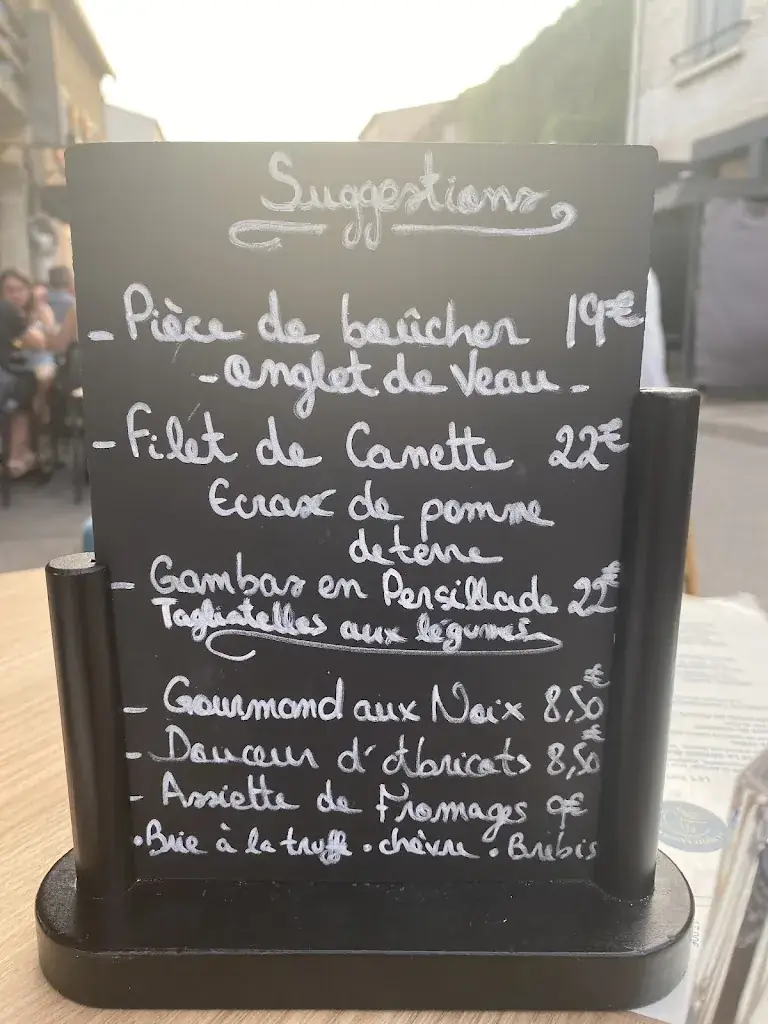 Suggestions
- Pièce de boûcher 19€
- Onglet de Veau -
- Filet de Canette 22€
Ecrasé de pomme
de terre
- Gambas en Persillade 22€
Tagliatelles aux légumes
- Gourmand aux Noix 8,50€
- Douceur d'Abricots 8,50€
- Assiette de Fromages 9€
• Brie à la truffe • chèvre • Brebis